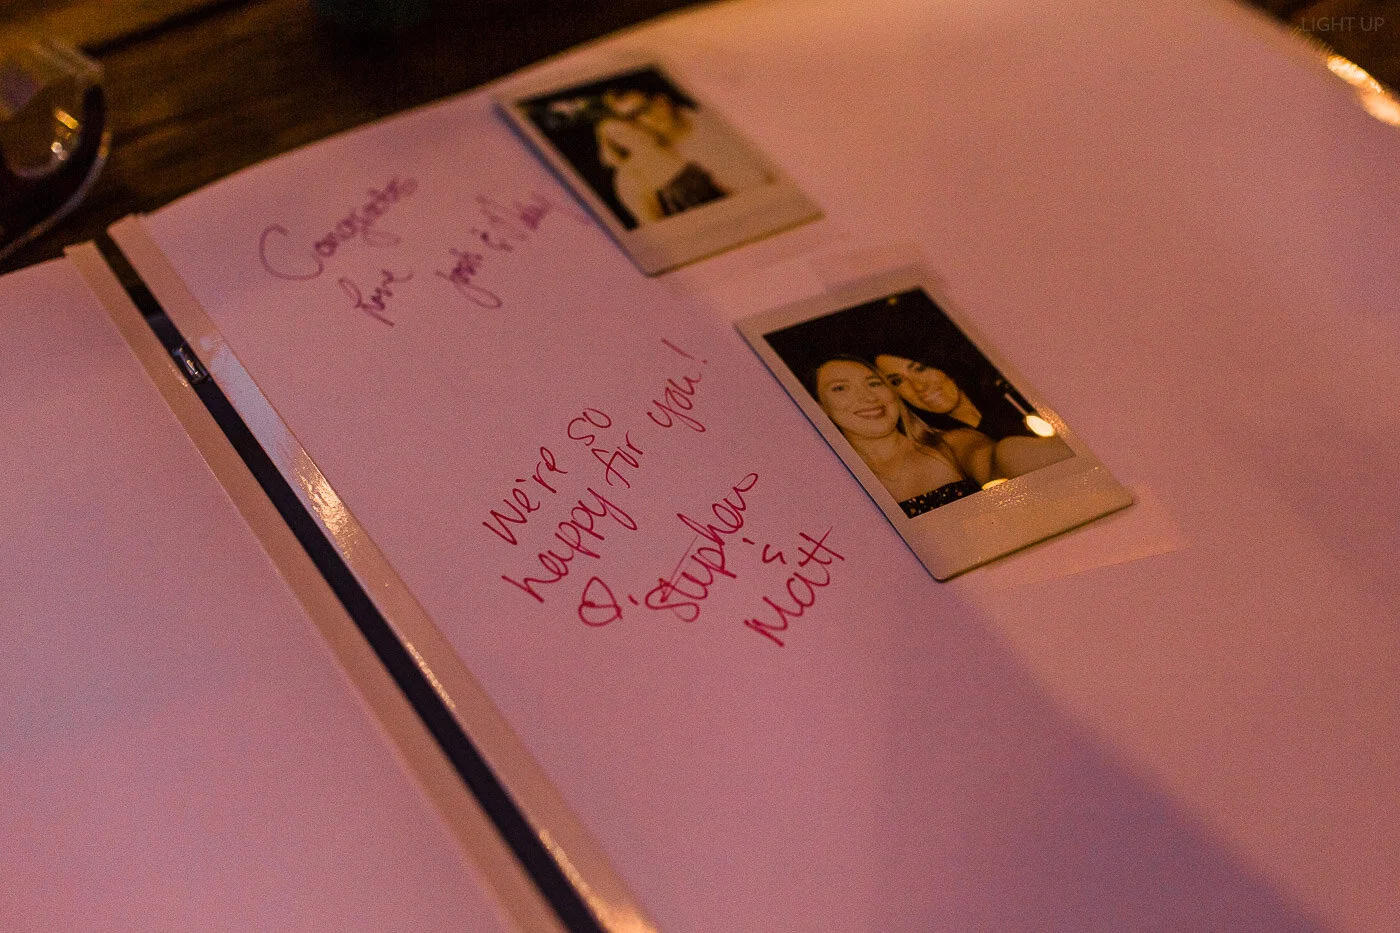 LIGHT UP
Congrats
Love
We're so
happy for you!
♡, Stephen
&
Matt